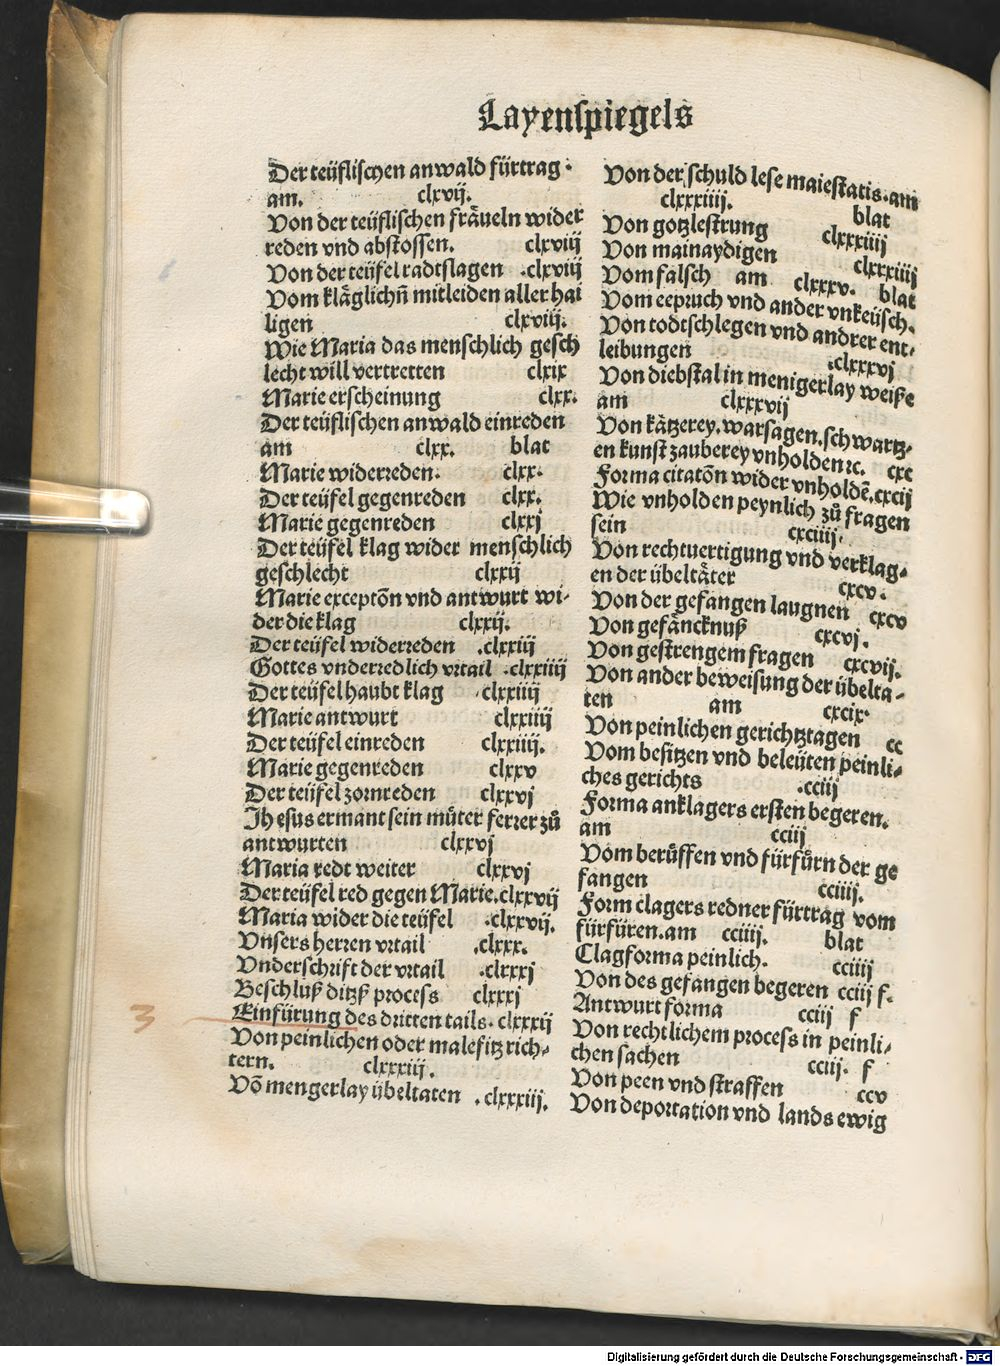 Layenspiegels
Der teüflischen anwald fürtrag.
am. clxvij.
Von der teüflischen fräueln wider
reden vnd abstossen. clxviij
Von der teüfel radtslagen .clxviij
Vom kläglichn̄ mitleiden aller hai
ligen clxviij.
Wie Maria das menschlich gesch
lecht will vertretten clxix
Marie erscheinung clxx.
Der teüflischen anwald einreden
am clxx. blat
Marie widerreden. clxx.
Der teüfel gegenreden clxx.
Marie gegenreden clxxj
Der teüfel klag wider menschlich
geschlecht clxxij
Marie exceptōn vnd antwurt wi-
der die klag clxxij.
Der teüfel widerreden .clxxiij
Gottes vnderredlich vrtail .clxxiiij
Der teüfel haubt klag clxxiiij
Marie antwurt clxxiiij
Der teüfel einreden clxxiiij.
Marie gegenreden clxxv
Der teüfel zornreden clxxvj
Jhesus ermant sein můter ferrer zů
antwurten clxxvj
Maria redt weiter clxxvj
Der teüfel red gegen Marie.clxxvij
Maria wider die teüfel .clxxvij.
Vnsers herren vrtail .clxxx.
Vnderschrift der vrtail .clxxxj
Beschluß ditzß process clxxxj
3 Einfürung des dritten tails. clxxxij
Von peinlichen oder malefitz rich-
tern. clxxxiij.
Võ mengerlay übeltaten .clxxxiij.
Von der schuld lese maiestatis.am
clxxxiiij. blat
Von gotzlestrung clxxxiiij
Von mainaydigen clxxxiiij
Vom falsch am clxxxv. blat
Vom eepruch vnd ander vnkeüsch.
Von todtschlegen vnd andrer ent-
leibungen .clxxxvj
Von diebstal in menigerlay weiße
am clxxxvij
Von kätzerey.warsagen.schwartz-
en kunst zauberey vnholden ꝛc. cxc
Forma citatōn wider vnholdē.cxcij
Wie vnholden peynlich zů fragen
sein cxciiij.
Von rechtuertigung vnd verklag-
en der übeltäter cxcv.
Von der gefangen laugnen cxcv
Von gefäncknuß cxcvj.
Von gestrengem fragen cxcvij.
Von ander beweisung der übelta-
ten am cxcix.
Von peinlichen gerichtztagen cc
Vom besitzen vnd beleüten peinli-
ches gerichts .cciij
Forma anklagers ersten begeren.
am cciij
Vom berüffen vnd fürfůrn der ge
fangen cciiij.
Form clagers redner fürtrag vom
fürfüren.am cciiij. blat
Clagforma peinlich. cciiij
Von des gefangen begeren cciij f.
Antwurt forma cciij f
Von rechtlichem process in peinli-
chen sachen cciij. f
Von peen vnd straffen ccv
Von deportation vnd lands ewig
Digitalisierung gefördert durch die Deutsche Forschungsgemeinschaft - DFG